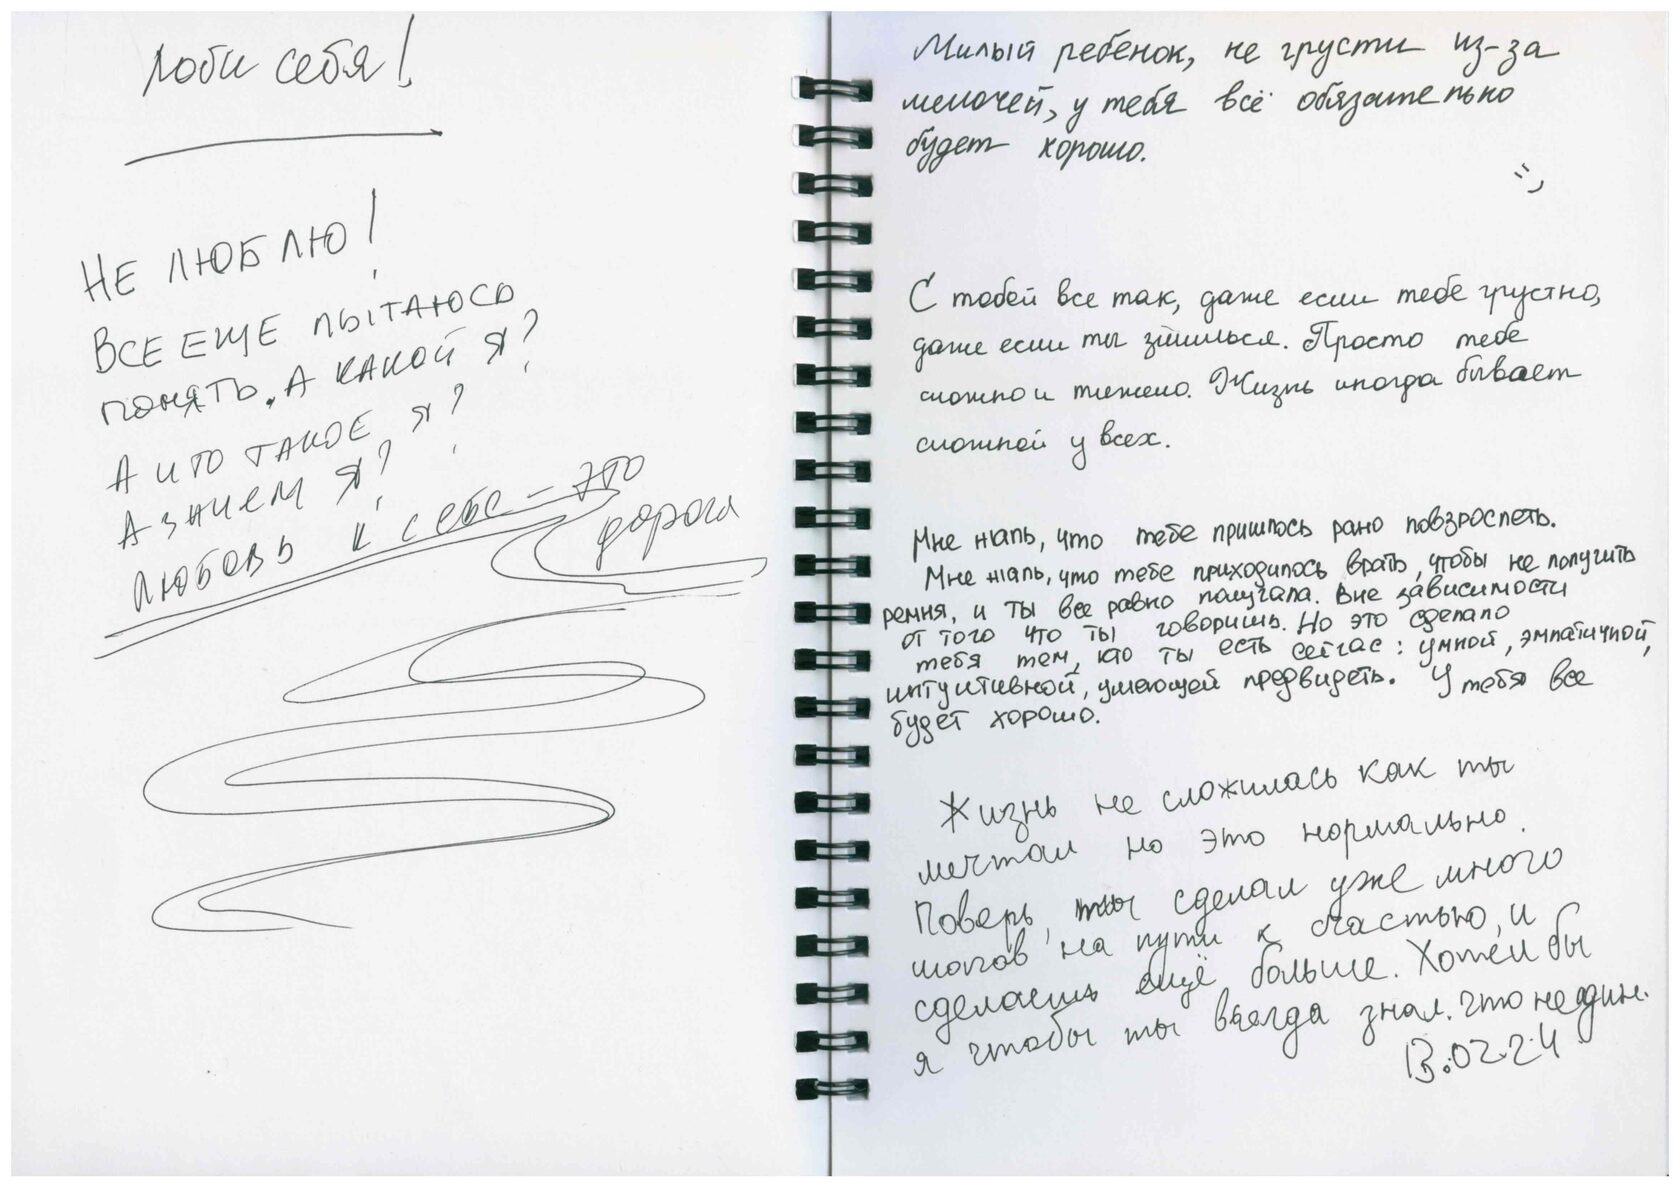 Люби себя!
НЕ ЛЮБЛЮ!
ВСЕ ЕЩЕ ПЫТАЮСЬ
ПОНЯТЬ. А КАКОЙ Я?
А ЧТО ТАКОЕ Я?
А ЗАЧЕМ Я?
ЛЮБОВЬ К СЕБЕ – ЭТО
дорога
Милый ребенок, не грусти из-за
мелочей, у тебя всё обязательно
будет хорошо.
=)
С тобой все так, даже если тебе грустно,
даже если ты злишься. Просто тебе
сложно и тяжело. Жизнь иногда бывает
сложной у всех.
Мне жаль, что тебе пришлось рано повзрослеть.
Мне жаль, что тебе приходилось врать, чтобы не получить
ремня, и ты все равно получала. Вне зависимости
от того что ты говоришь. Но это сделало
тебя тем, кто ты есть сейчас: умной, эмпатичной,
интуитивной, умеющей предвидеть. У тебя все
будет хорошо.
Жизнь не сложилась как ты
мечтал но это нормально.
Поверь, ты сделал уже много
шагов на пути к счастью, и
сделаешь ещё больше. Хотел бы
я чтобы ты всегда знал. что не один.
13.02.24